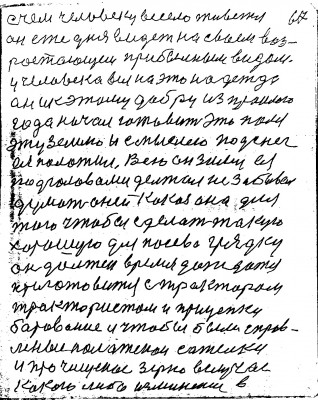 с чем человеку весело живется 67
он ежедня видет на своем воз-
ростающем прибыльным видом.
у человека вся на это надежда
он и к этому добру из прошлого
года начал готовить это поле
эту землю и смыслею под снег
её положил, Весь он зиму ея
под головами держал не забывал
думат о ней Какова она для
того чтобы сделат такую
хорошую для посева грядку
он должен время дождатся
приготовится с трактором
трактористом и прицепку
барование и чтобы были справ-
леные сеялки
и прочищеное зерно в случае
какого либо изминения в